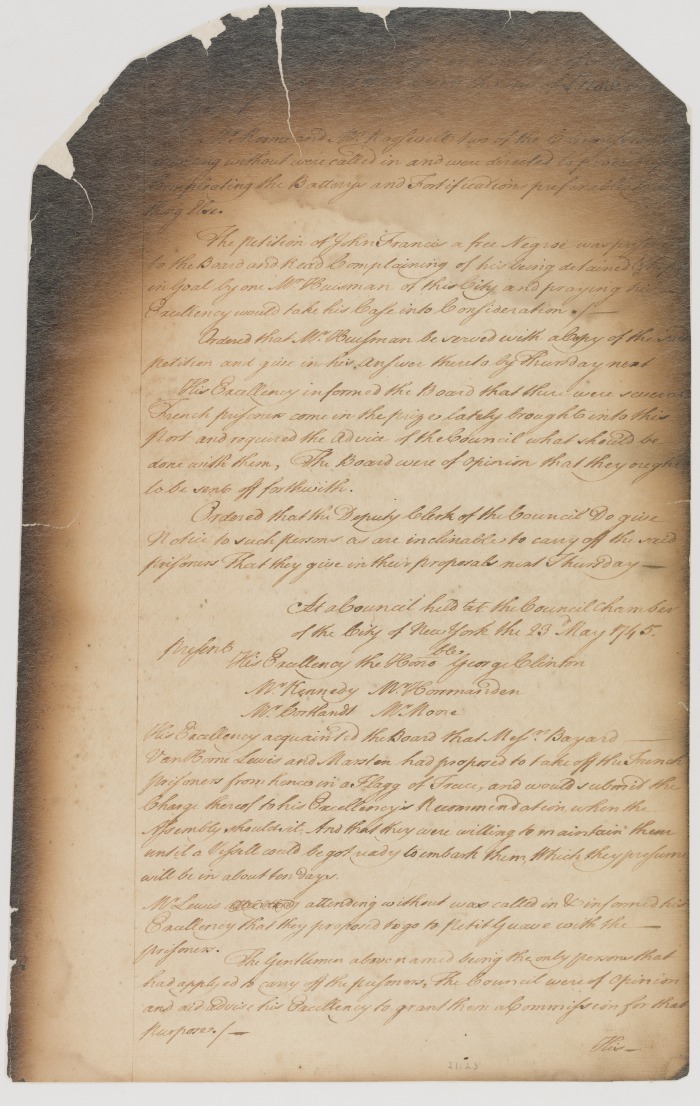 Mr. Moore and Mr. two of the
without were called in and were directed to
the Batterys and Fortifications preferable to
thing Else.
The petition of John Francis a free Negroe was
to the Board and Read Complaining of his being detained
in Goal by one Mr. Huisman of this City and praying his
Excellency would take his Case into Consideration ./—
Ordered that Mr. Huisman be served with a Copy of the said
petition and give in his Answer thereto by Thursday next
His Excellency informed the Board that there were several
French prisoners come in the prizes lately brought into this
Port and required the Advice of the Council what should be
done with them, The Board were of opinion that they ought
to be sent off forthwith.
Ordered that the Deputy Clerk of the Council Do give
Notice to such persons as are inclinable to carry off the said
prisoners That they give in their proposals next Thursday—
At a Council held att the Council Chamber
of the City of New York the 23d May 1745.
Present
His Excellency the Honoble George Clinton
Mr. Kennedy Mr. Horsmanden
Mr. Cortlandt Mr. Moore
His Excellency acquainted the Board that Messrs. Bayard
Van Horne Lewis and Marston had proposed to take off the French
prisoners from hence in a Flagg of Truce, and would submit the
Charge thereof to his Excellency's Recommendation when the
Assembly should sit. And that they were willing to maintain them
until a Vessell could be got ready to embark them, Which they presume
will be in about ten days.
Mr. Lewis attending without was called in & informed his
Excellency that they proposed to go to Petit Guave with the
prisoners.
The Gentlemen above named being the only persons that
had applyed to carry off the prisoners, The Council were of Opinion
and did advise his Excellency to grant them a Commission for that
Purpose ./—
His—
21.23